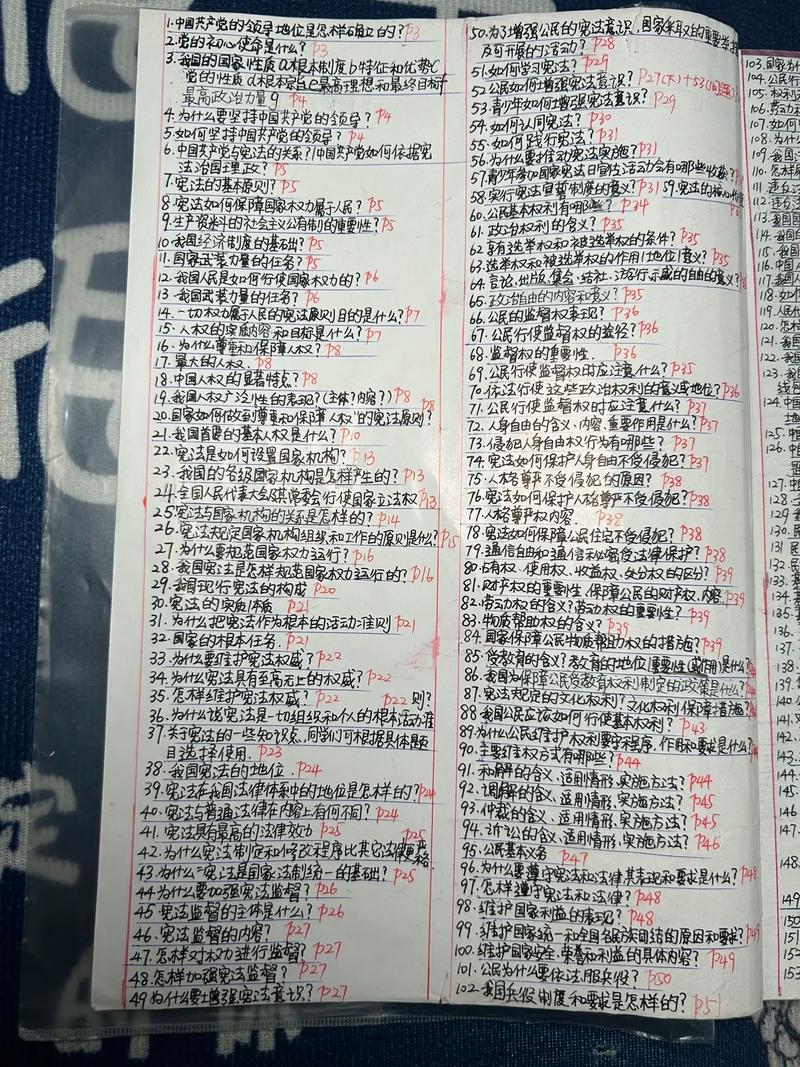 1.中国共产党的领导地位是怎样确立的？P3
2.党的初心使命是什么？P3
3.我国的国家性质a根本制度b特征和优势c
党的性质d根本宗旨e最高理想和最终目标f
最高政治力量g P4
4.为什么要坚持中国共产党的领导？P4
5.如何坚持中国共产党的领导？P4
6.中国共产党与宪法的关系？/中国共产党如何依据宪
法治国理政？P5
7.宪法的基本原则？P5
8.宪法如何保障国家权力属于人民？P5
9.生产资料的社会主义公有制的重要性？P5
10.我国经济制度的基础？P5
11.国家武装力量的任务？P5
12.我国人民是如何行使国家权力的？P6
13.我国武装力量的任务？P6
14.一切权力属于人民的宪法原则目的是什么？P7
15.人权的实质内容和目标是什么？P7
16.为什么尊重和保障人权？P8
17.最大的人权。P8
18.中国人权的显著特点？P8
19.我国人权广泛性的表现？（主体？内容？）P8
20.国家如何做到尊重和保障人权"的宪法原则？P8
21.我国首要的基本人权是什么？P10
22.宪法是如何设置国家机构？P13
23.我国的各级国家机构是怎样产生的？P13
24.全国人民代表大会及其常委会行使国家立法权P13
25.宪法与国家机构的关系是怎样的？P14
26.宪法规定国家机构组织和工作的原则是什么？P15
27.为什么要规范国家权力运行？P16
28.我国宪法是怎样规范国家权力运行的？P16
29.我国现行宪法的构成 P20
30.宪法的实质体质 P21
31.为什么把宪法作为根本的活动准则 P21
32.国家的根本任务。P21
33.为什么要维护宪法权威？P22
34.为什么宪法具有至高无上的权威？P22
35.怎样维护宪法权威？P22 P22 则？
36.为什么说宪法是一切组织和个人的根本活动准
37.关于宪法的一些知识点，同学们可根据具体题
目选择使用。P23
38.我国宪法的地位。P24
39.宪法在我国法律体系中的地位是怎样的？P24
40.宪法与普通法律在内容上有何不同？P24
41.宪法具有最高的法律效力 P25
42.为什么宪法制定和修改程序比其它法律更严格 P25
43.为什么宪法是国家法制统一的基础？P25
44.为什么要加强宪法监督？P26
45.宪法监督的主体是什么？P26
46.宪法监督的内容？P27
47.怎样对权力进行监督？P27
48.怎样加强宪法监督？P27
49.为什么要增强宪法意识？P27
50.为了增强公民的宪法意识，国家采取的重要举措
及可开展的活动？P28
51.如何学习宪法？P29
52.公民如何增强宪法意识？P27(下)+53(1问题)
53.青少年如何增强宪法意识？P29
54.如何认同宪法？P30
55.如何践行宪法？P31
56.为什么要推动宪法实施？P31
57.青少年参加国家宪法日宣传活动会有哪些收获？P31
58.实行宪法宣誓制度的意义？P31 59.宪法的核心价值
60.公民基本权利有哪些？P34
61.政治权利的含义？P35
62.享有选举权和被选举权的条件？P35
63.选举权和被选举权的作用/地位/意义？P35
64.言论、出版、集会、结社、游行示威的自由的意义？
65.政治自由的内容和意义？P35
66.公民的监督权表现？P36
67.公民行使监督权的途径？P36
68.监督权的重要性。P36
69.公民行使监督权时应注意什么？P35
70.依法行使这些政治权利的意义或地位？P36
71.公民行使监督权时应注意什么？P37
72.人身自由的含义、内容、重要作用是什么？P37
73.侵犯人身自由权行为有哪些？P37
74.宪法如何保护人身自由不受侵犯？P37
75.人格尊严不受侵犯的原因？P38
76.宪法如何保护人格尊严不受侵犯？P38
77.人格尊严权内容。P38
78.宪法如何保障公民住宅不受侵犯？P38
79.通信自由和通信秘密受法律保护？P38
80.占有权、使用权、收益权、处分权的区分？P39
81.财产权的重要性、保障公民的财产权、内容。P39
82.劳动权的含义？劳动权的重要性？P39
83.物质帮助权的含义？P39
84.国家保障公民物质帮助权的措施？P39
85.受教育的含义？教育的地位，重要性（或作用）是什么？
86.我国为保障公民受教育权利制定的政策是什么？
87.宪法规定的文化权利？文化权利保障措施？
88.我国公民应该如何行使基本权利？P43
89.为什么公民维护权利要守程序，作用和要求是什么？
90.主要维权方式有哪些？P44
91.和解的含义、适用情形、实施方法？P44
92.调解的含义、适用情形、实施方法？P45
93.仲裁的含义、适用情形、实施方法？P45
94.诉讼的含义、适用情形、实施方法？P46
95.公民基本义务 P47
96.为什么要遵守宪法和法律其表现和要求是什么？P48
97.怎样遵守宪法和法律？P48
98.维护国家利益的表现？P48
99.维护国家统一和全国各民族团结的原因和要求？P49
100.维护国家安全、荣誉和利益的具体内容？P49
101.公民为什么要依法服兵役？P50
102.我国兵役制度和要求是怎样的？P51